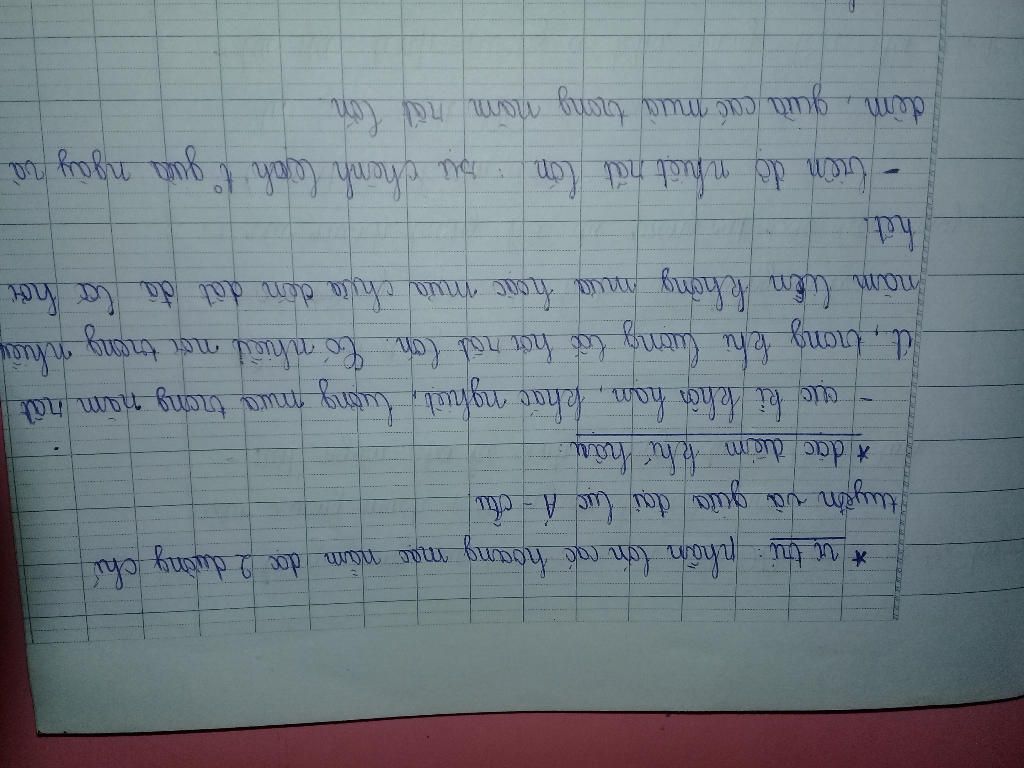 * vị trí: phần lớn các hoang mạc nằm dọc 2 đường chí
tuyến và giữa đại lục Á - Âu
* đặc điểm khí hậu:
- cực kì khô hạn, khắc nghiệt, lượng mưa trong năm rất
ít, trong khi lượng bốc hơi rất lớn. Có nhiều nơi trong nhiều
năm liền không mưa hoặc mưa chưa đến đất đã bốc hơi
hết.
- biên độ nhiệt rất lớn: sự chênh lệch t° giữa ngày và
đêm, giữa các mùa trong năm rất lớn